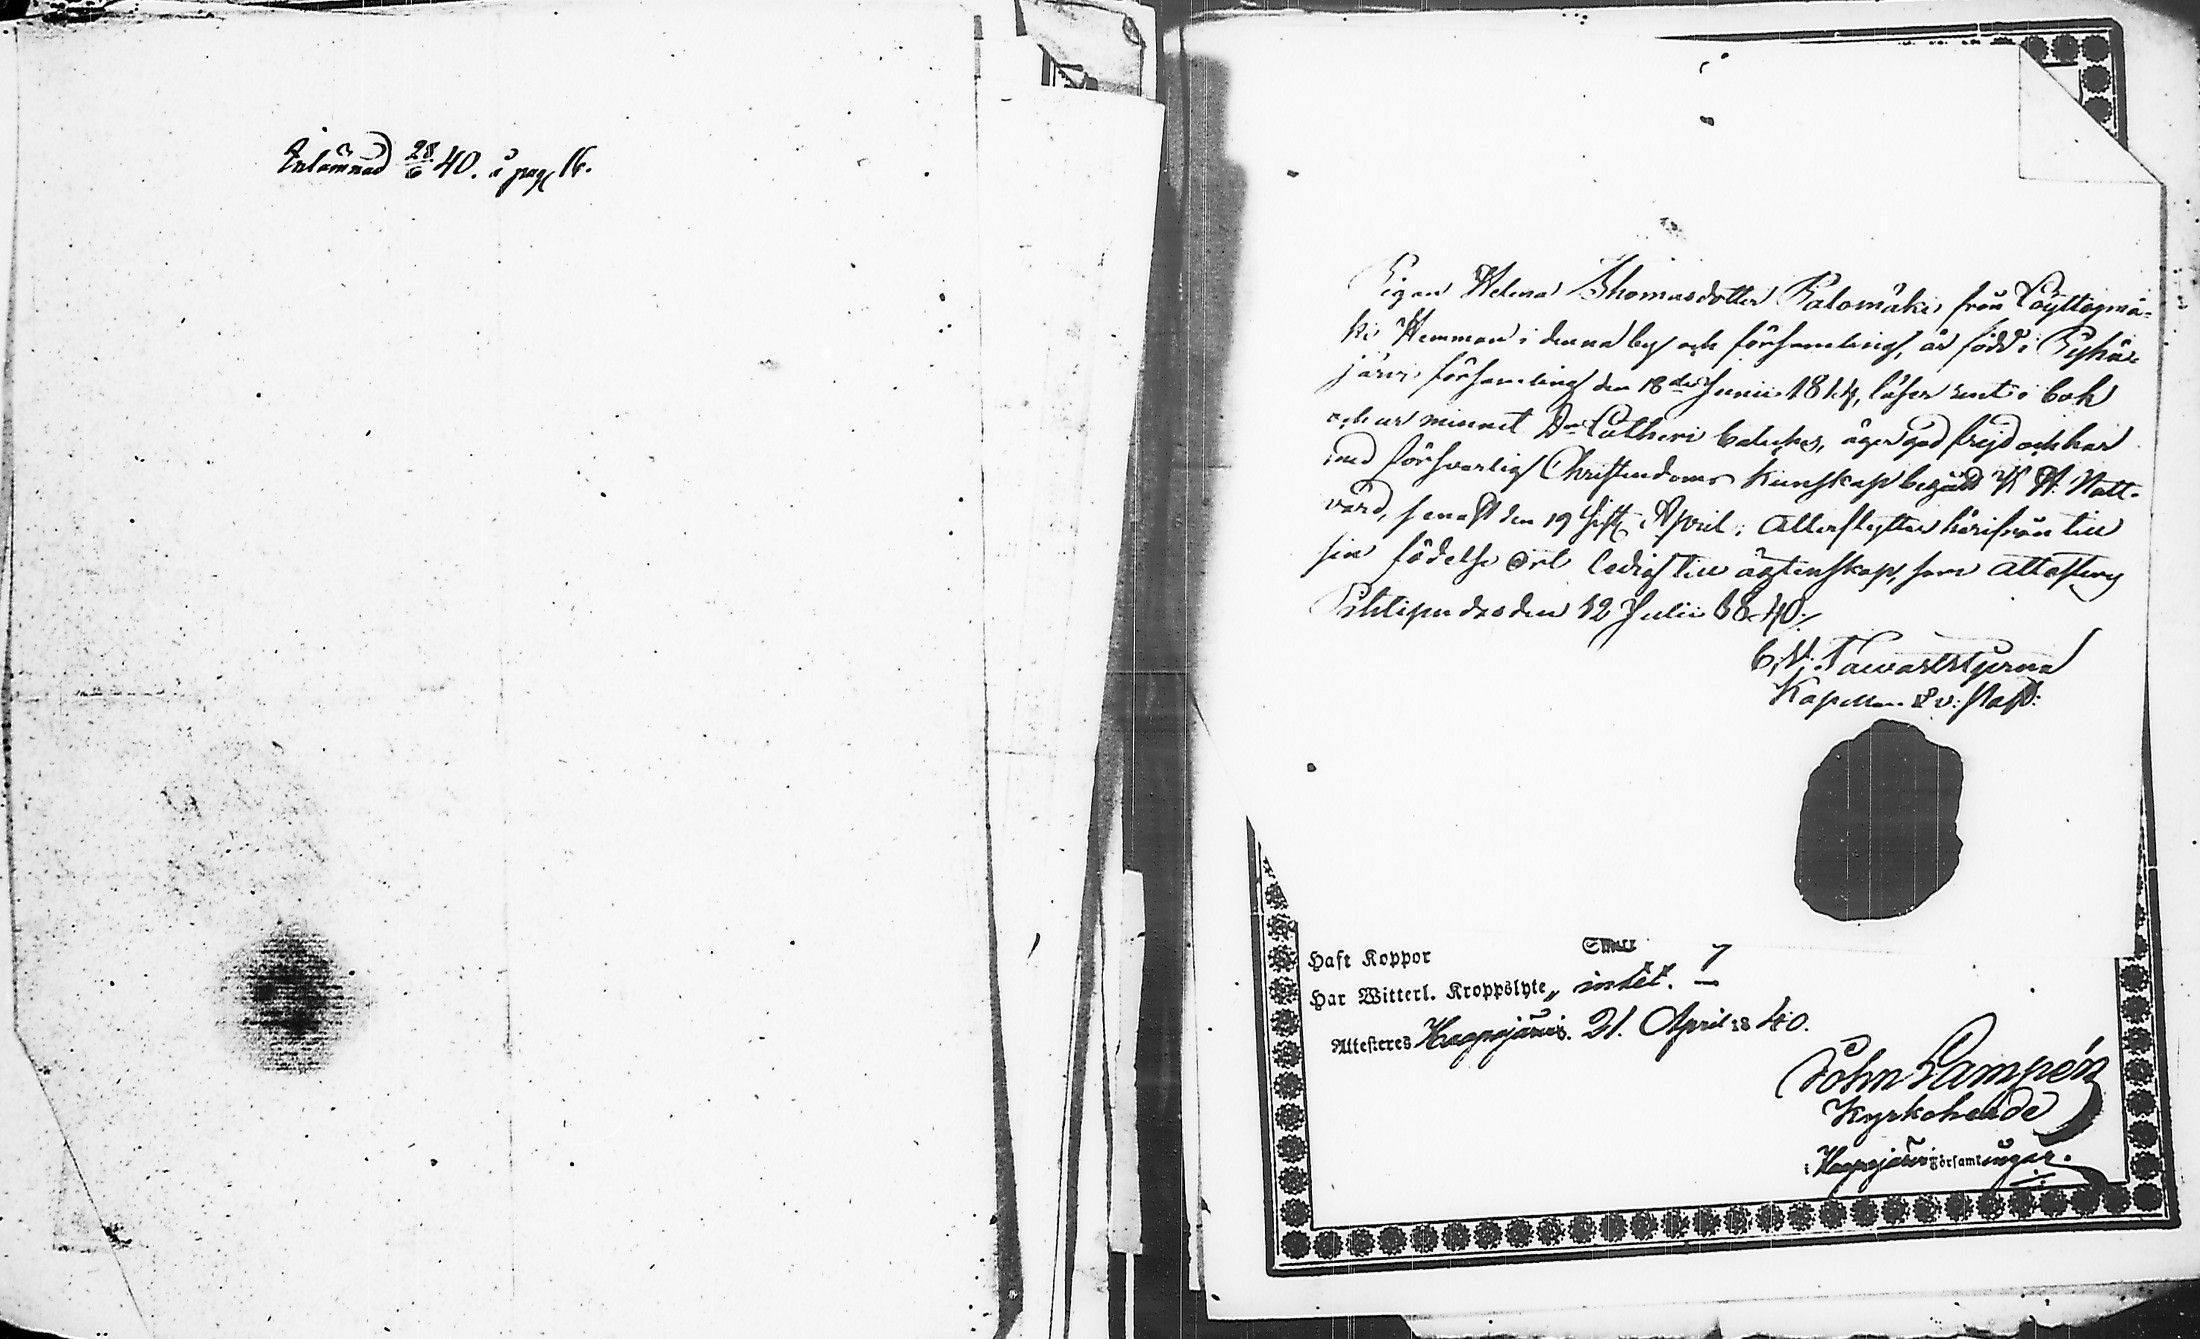 Inlämnad 28/6 40. å pag 16.
Pigan Helena Thomasdotter Palomäki från Löyttynmä-
ki Hemman i denna by och församling, är född i Pyhä-
järvi församling den 18de Junii 1814, läser rent i bok
och ur minnet Dr Lutheri Catekes, äger god frejd och har
med försvarlig Christendoms kunskap begått H. H. Natt-
vard, senast den 19 sistl. April; Allerflyttar härifrån till
sin födelse Ort ledig till ägtenskap, som attesterar
Pihtipudas den 12 Julii 1840
C. W. Tawaststjerna
Kapellan & v. Past.
Haft Koppor
Har Witterl. Kroppslyte „ intet. —
Attesteres Haapajärvi. 21. April 1840.
John Lampén
Kyrkoherde
i Haapajärvi Församlingar.